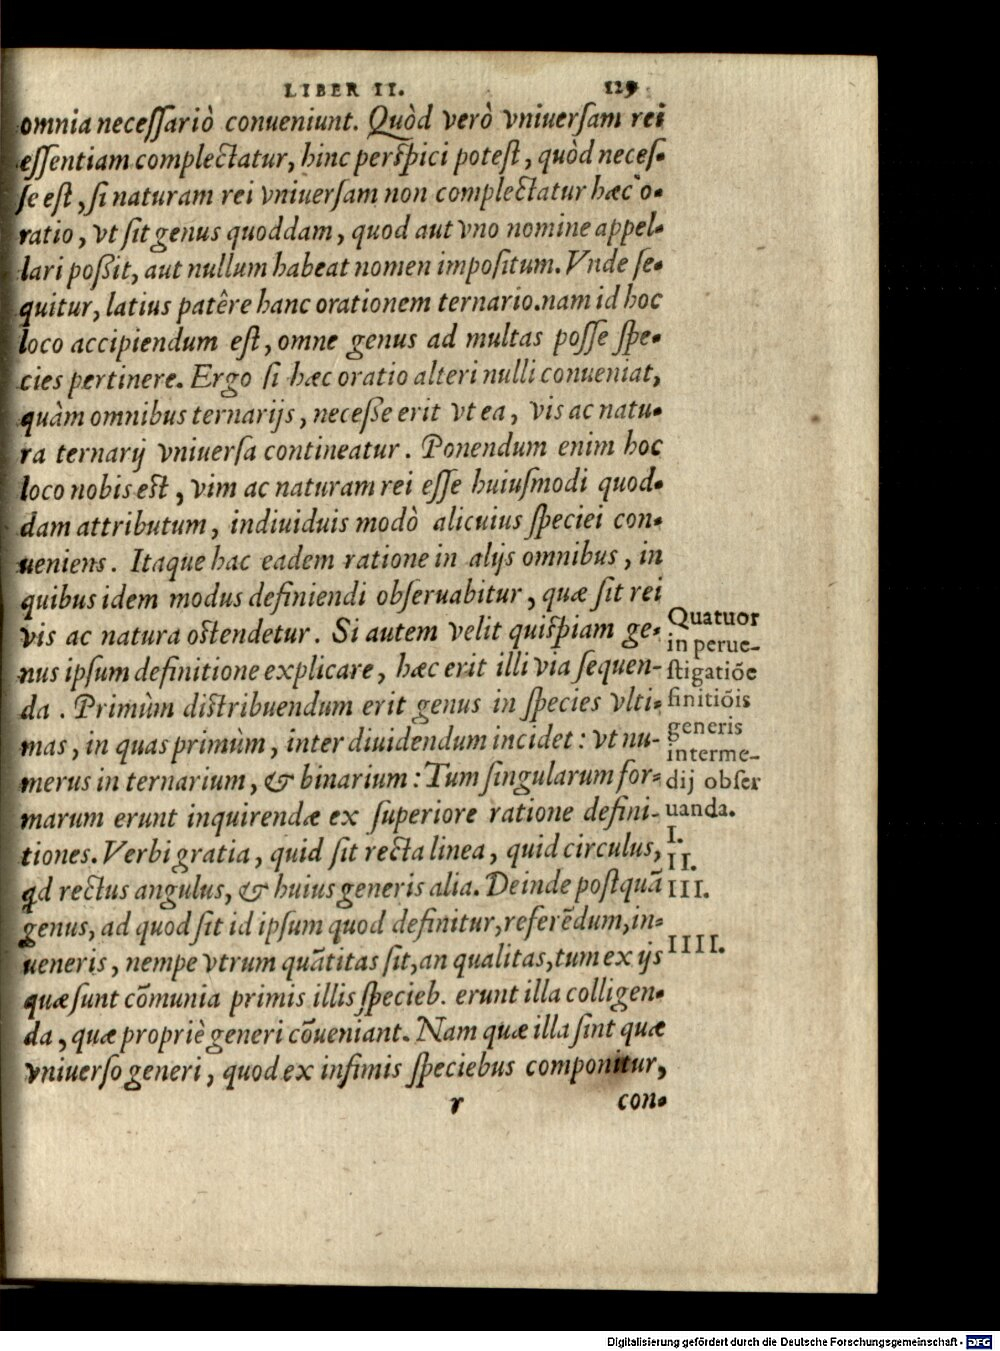 LIBER II. 129
omnia necessariò conueniunt. Quòd verò vniuersam rei
essentiam complectatur, hinc perspici potest, quòd neces-
se est, si naturam rei vniuersam non complectatur hæc o-
ratio, vt sit genus quoddam, quod aut vno nomine appel-
lari poßit, aut nullum habeat nomen impositum. Vnde se-
quitur, latius patêre hanc orationem ternario. nam id hoc
loco accipiendum est, omne genus ad multas posse spe-
cies pertinere. Ergo si hæc oratio alteri nulli conueniat,
quàm omnibus ternarijs, neceße erit vt ea, vis ac natu-
ra ternarij vniuersa contineatur. Ponendum enim hoc
loco nobis est, vim ac naturam rei esse huiusmodi quod-
dam attributum, indiuiduis modò alicuius speciei con-
ueniens. Itaque hac eadem ratione in alijs omnibus, in
quibus idem modus definiendi obseruabitur, quæ sit rei
vis ac natura ostendetur. Si autem velit quispiam ge-
nus ipsum definitione explicare, hæc erit illi via sequen-
da. Primùm distribuendum erit genus in species vlti-
mas, in quas primùm, inter diuidendum incidet: vt nu-
merus in ternarium, & binarium: Tum singularum for-
marum erunt inquirendæ ex superiore ratione defini-
tiones. Verbi gratia, quid sit recta linea, quid circulus,
qd rectus angulus, & huius generis alia. Deinde postquā
genus, ad quod sit id ipsum quod definitur, referēdum, in-
ueneris, nempe vtrum quātitas sit, an qualitas, tum ex ijs
quæ sunt cōmunia primis illis specieb. erunt illa colligen-
da, quæ propriè generi cōueniant. Nam quæ illa sint quæ
vniuerso generi, quod ex infimis speciebus componitur,
r con-
Quatuor
in perue-
stigatiōe
finitiōis
generis
interme-
dij obser
uanda.
I.
II.
III.
IIII.
Digitalisierung gefördert durch die Deutsche Forschungsgemeinschaft - DFG